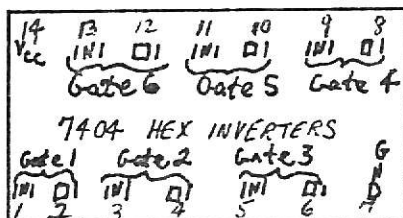 14 13 12 11 10 9 8
Vcc IN O IN O IN O
Gate 6 Gate 5 Gate 4
7404 HEX INVERTERS
Gate 1 Gate 2 Gate 3 G
N
IN O IN O IN O D
1 2 3 4 5 6 7